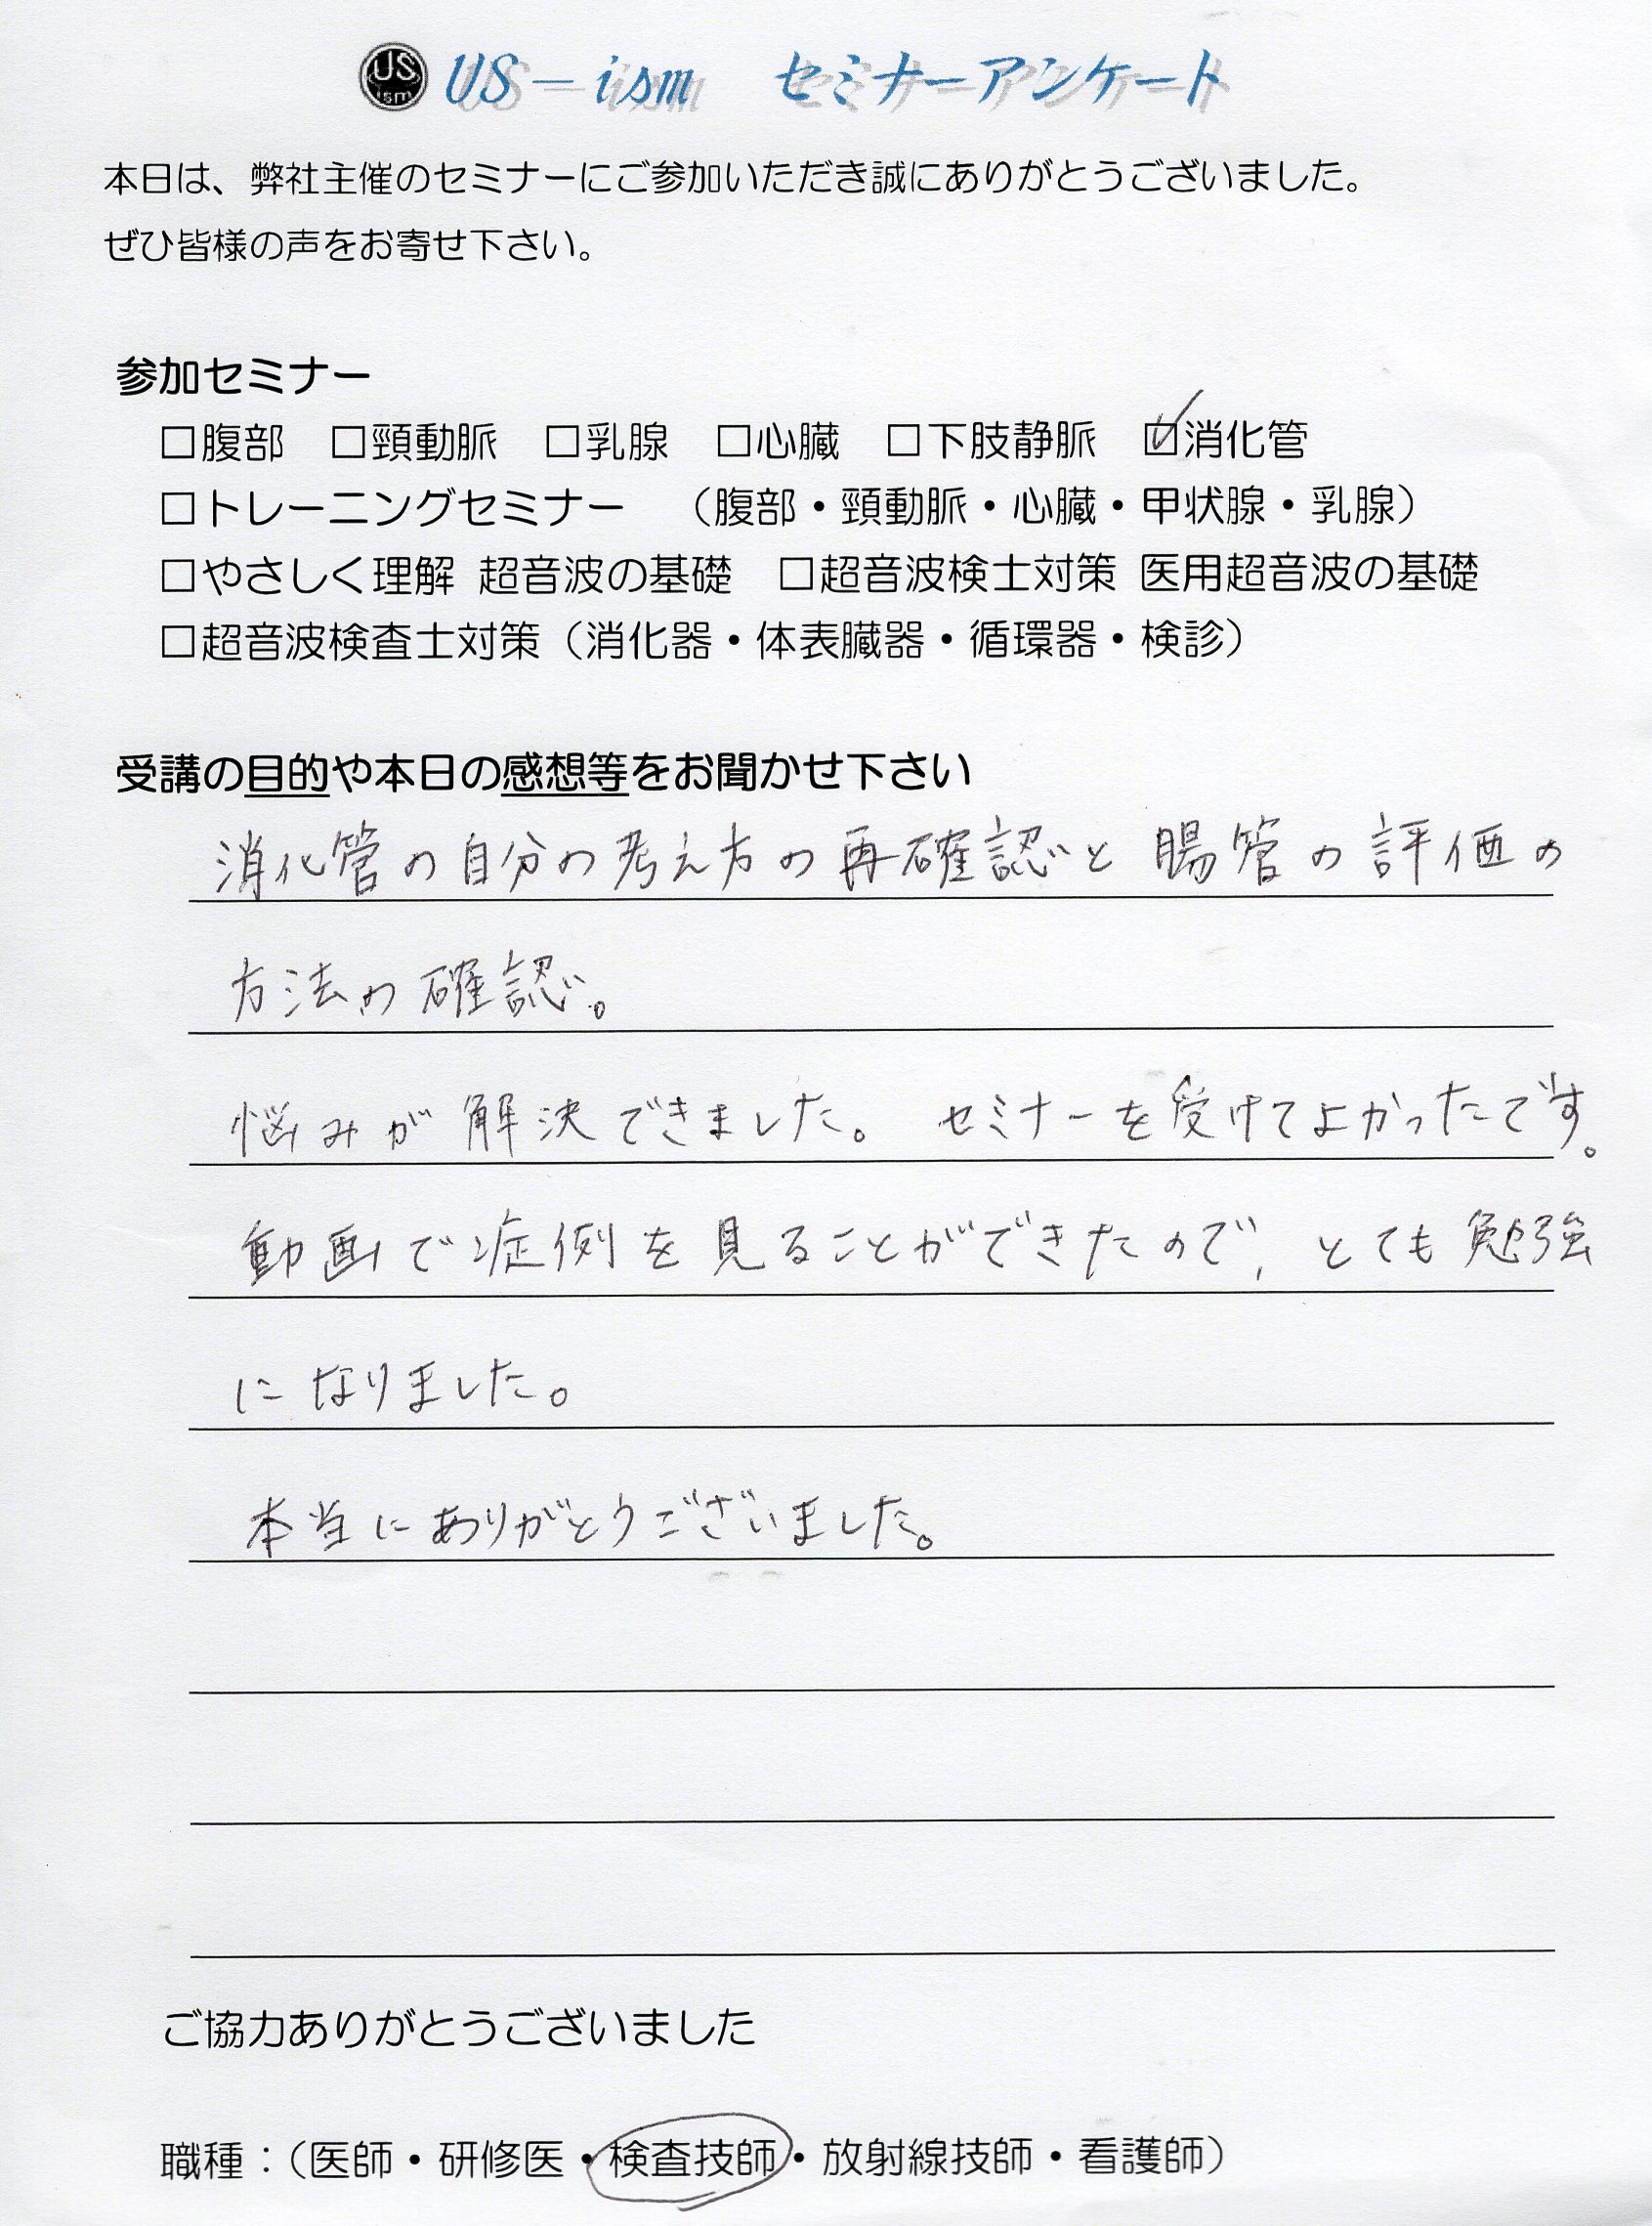 US ism US-ism セミナーアンケート
本日は、弊社主催のセミナーにご参加いただき誠にありがとうございました。
ぜひ皆様の声をお寄せ下さい。
参加セミナー
□腹部 □頸動脈 □乳腺 □心臓 □下肢静脈 ☑消化管
□トレーニングセミナー （腹部・頸動脈・心臓・甲状腺・乳腺）
□やさしく理解 超音波の基礎 □超音波検士対策 医用超音波の基礎
□超音波検査士対策（消化器・体表臓器・循環器・検診）
受講の目的や本日の感想等をお聞かせ下さい
消化管の自分の考え方の再確認と腸管の評価の
方法の確認。
悩みが解決できました。セミナーを受けてよかったです。
動画で症例を見ることができたので、とても勉強
になりました。
本当にありがとうございました。
ご協力ありがとうございました
職種：（医師・研修医・検査技師・放射線技師・看護師）